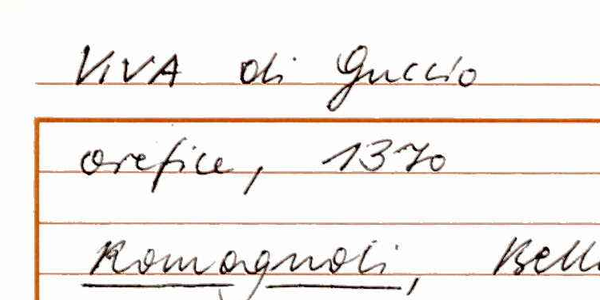 VIVA di Guccio
orefice, 1370
Romagnoli, Bell